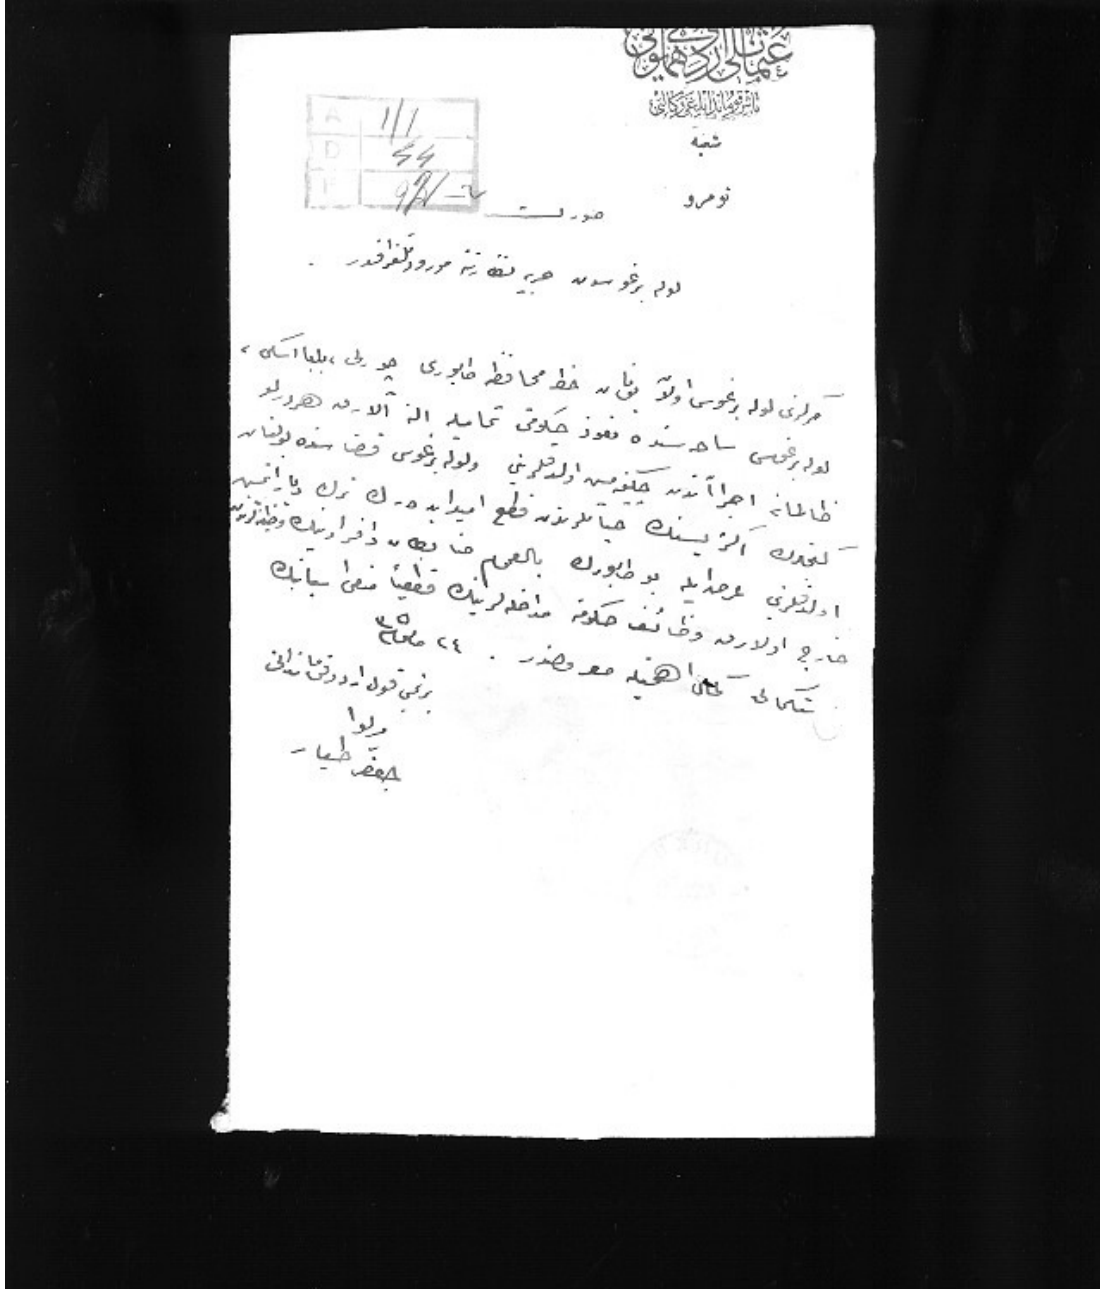 عثمانلی اردوی همایونی
باش قوماندانلغی وكالتی
شعبه
نومرو
صورت
A 1/1
D 44
F
لوله برغوسدن حربیه نظارتنه مورود تلغرافدر .
مركزی لوله برغوسی اولان یونان خط محافظه طابوری چورلی ، بابا اسكی ،
لوله برغوسی ساحه سنده نفوذ حكومتی تمامیله الە آلارق هر درلو
ظالمانه اجراآتدن چكینممش اولدقلرینی ولوله برغوسی قضاسنده بولنان
اكثریسنك حیاتلرندن قطع امید ایده رك ترك دیار ایتمش
اولدقلرینی عرض ایله بو طابورك بالعموم ضابطان وافرادینك وظیفه لرندن
خارج اولارق وظائف حكومته مداخله لرینك قطعیاً منعی اسبابنك
استكمالی كمال اهمیتله معروضدر . ٢٤ مارت ٣٥
برنجی قول اردو قوماندانی
میرلوا
جعفر طیار